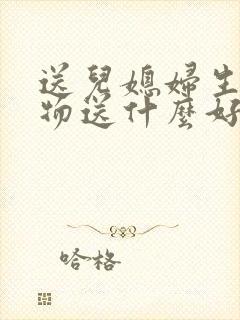 送兒媳婦生
物送什麼好
哈格